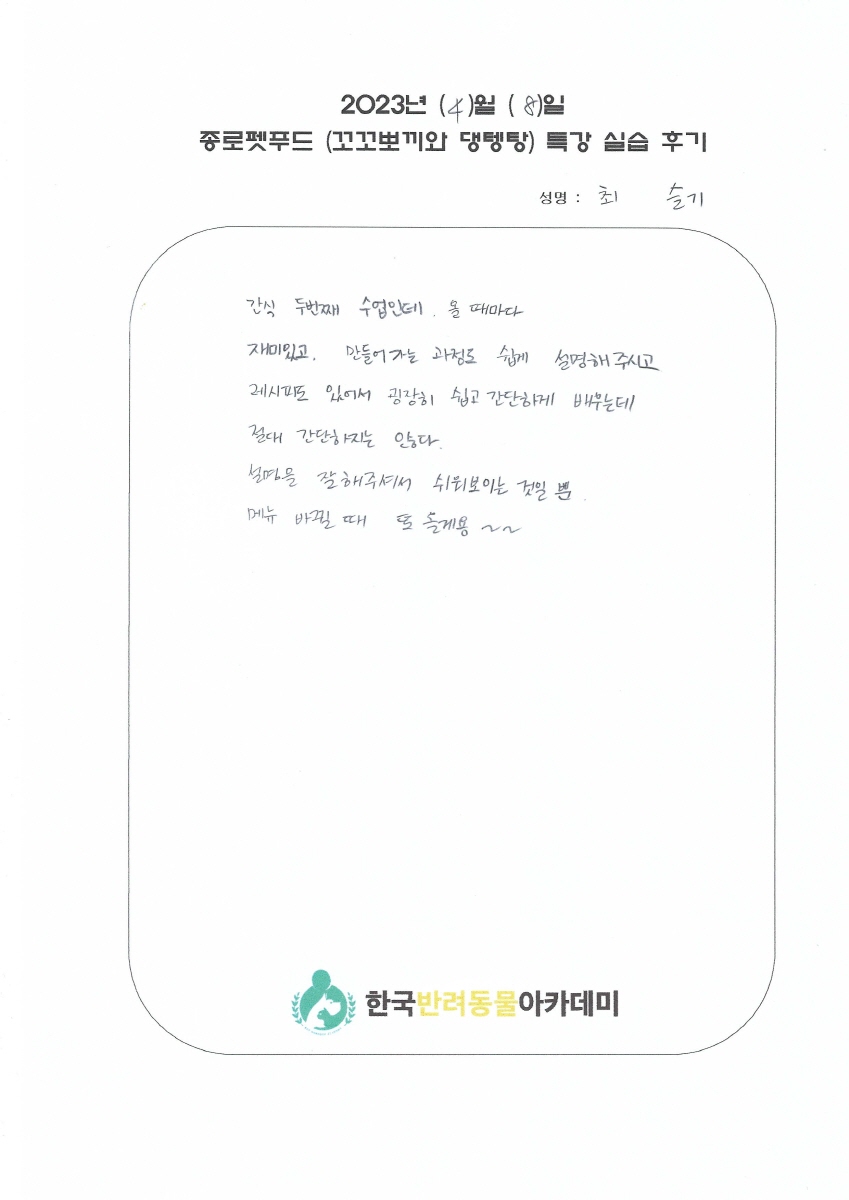 2023년 (4)월 (8)일
종로펫푸드 (꼬꼬뽀끼와 댕텡탕) 특강 실습 후기
성명 : 최 슬기
간식 두번째 수업인데. 올 때마다
재미있고. 만들어가는 과정도 쉽게 설명해주시고
레시피도 있어서 굉장히 쉽고 간단하게 배우는데
절대 간단하지는 않다.
설명을 잘해주셔서 쉬워보이는 것일 뿐.
메뉴 바뀔 때 또 올게용 ~~
한국반려동물아카데미